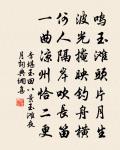 鸣玉滩头片月生
波光摇映钓舟横
何人隔岸吹长笛
一曲凉州恰二更
李堪玉田八景玉滩夜
月词典调集